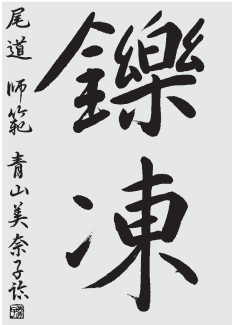 鑠凍
尾道 師範 青山美奈子